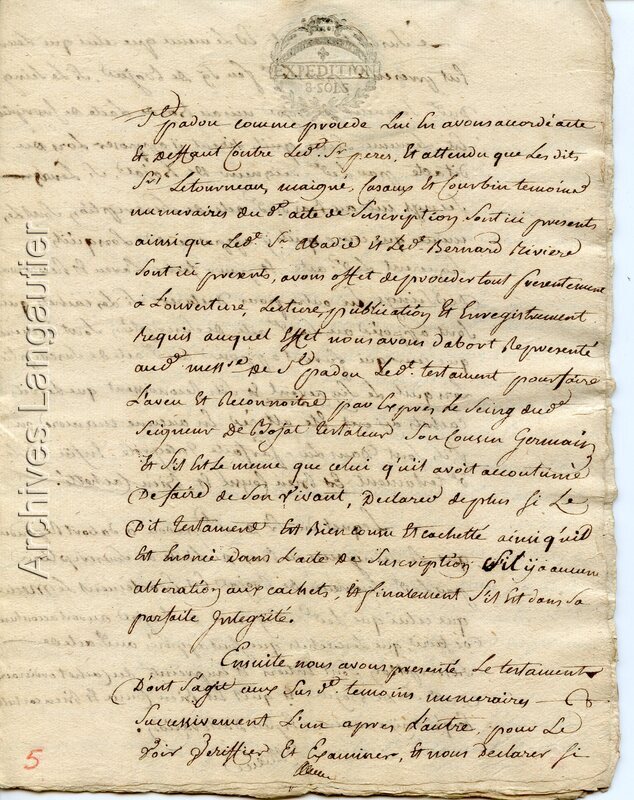 EXPEDITION
8. SOLS
St padou comme procede Lui En avons accordé acte
Et deffaut Contre Led.t Sr peres, Et attendu que Les dits
Srs Letourneau, maigné, Casaux Et Courbin temoins
numeraires du d.t acte de Suscription Sont ici presents
ainsi que Led.t Sr Abadie Et Led.t Bernard Riviere
Sont ici presents, avons offet de proceder tout presentement
à L'ouverture, Lecture, publication Et Enregistrement
Requis auquel Effet nous avons d'abort Representé
aud.t mess.re de St padou Led.t testament pour faire
L'aveu Et Reconnoitre par Expres Le Seing dud.t
Seigneur De Testateur Son Cousin Germain
Et S'il Est Le meme que celui qu'il avoit accoutumé
De faire de Son Vivant, Declarer de plus Si Le
Dit testament Est Bien cousu Et cachetté ainsi qu'il
Est Enoncé dans L'acte de Suscription S'il ij a aucune
alteration aux cachets, Et finalement S'il Est dans Sa
parfaite Integrité.
Ensuite nous avons presenté Le testament
Dont S'agit aux Sus d.ts temoins numeraires
Successivement L'un apres L'autre, pour Le
Voir Veriffier Et Examiner, Et nous Declarer Si
5
Archives Langautier